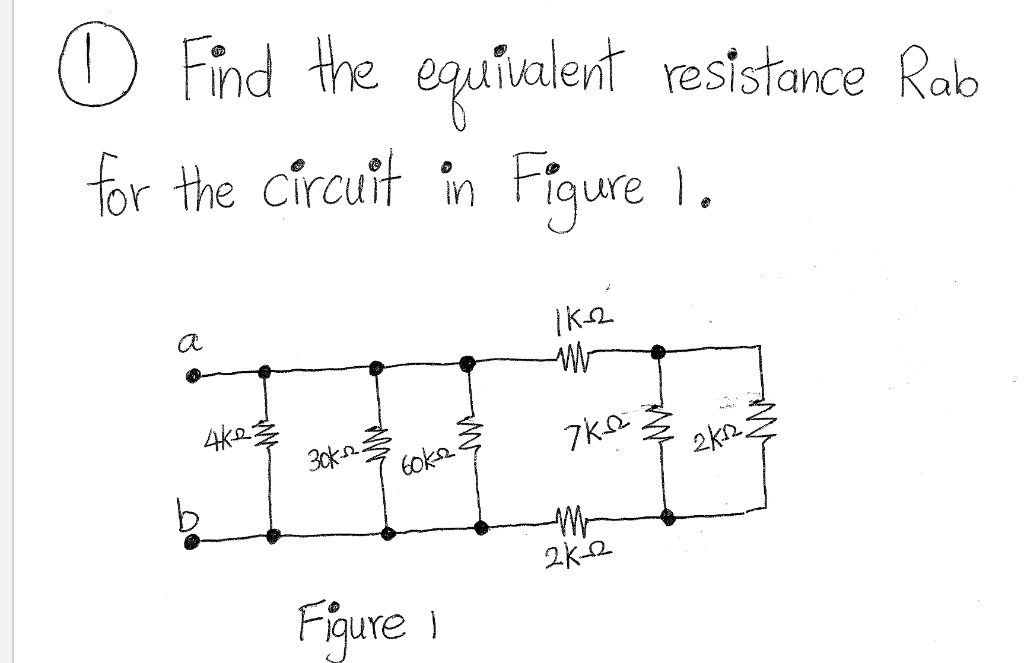 ① Find the equivalent resistance Rab
for the circuit in Figure 1.
1KΩ
a
4KΩ
30KΩ
60KΩ
7KΩ
2KΩ
b
2KΩ
Figure 1